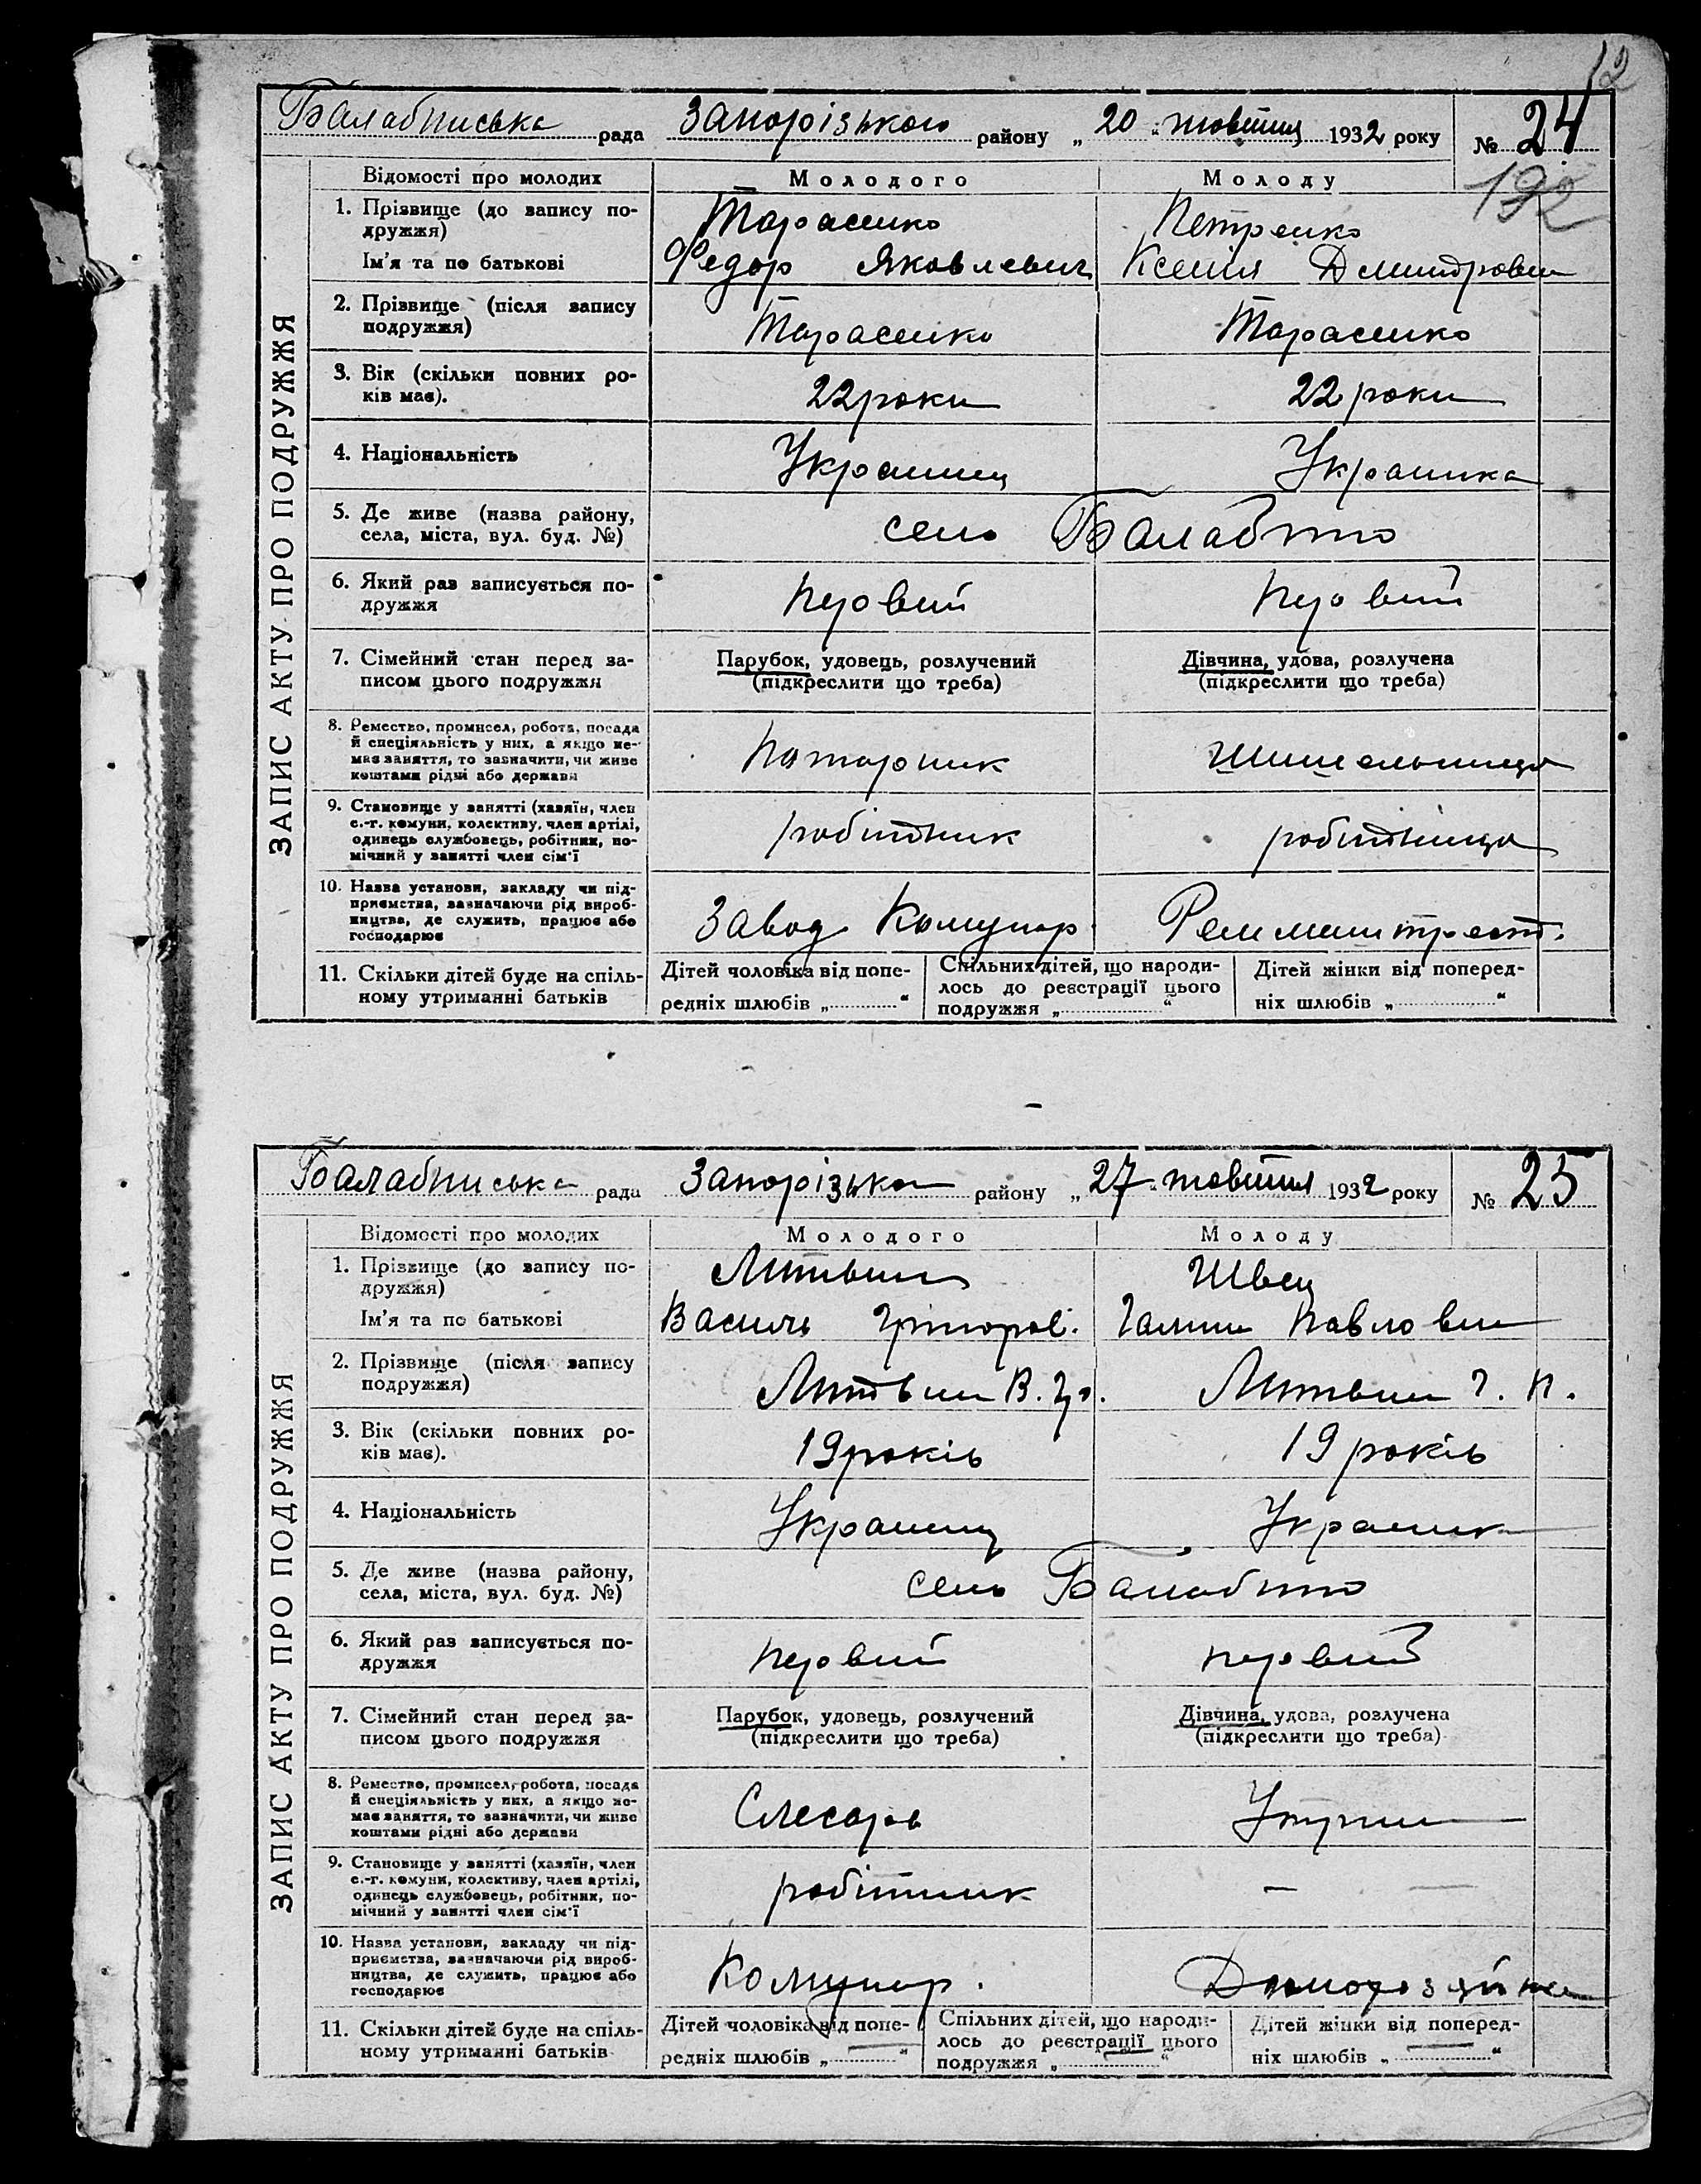 12
Балабинська рада Запорізького району „20“ жовтня 1932 року № 24
192
ЗАПИС АКТУ ПРО ПОДРУЖЖЯ
Відомості про молодих Молодого Молоду
1. Прізвище (до запису по-
дружжя) Тарасенко Петренко
Ім'я та по батькові Федор Яковлевич Ксенія Дмитровна
2. Прізвище (після запису
подружжя) Тарасенко Тарасенко
3. Вік (скільки повних ро-
ків має). 22 роки 22 роки
4. Національність Украинец Украинка
5. Де живе (назва району,
села, міста, вул. буд. №) село Балабино
6. Який раз записується по-
дружжя первий первий
7. Сімейний стан перед за-
писом цього подружжя
Парубок, удовець, розлучений
(підкреслити що треба)
Дівчина, удова, розлучена
(підкреслити що треба)
8. Ремество, промисел, робота, посада
й спеціяльність у них, а якщо не-
має заняття, то зазначити, чи живе
коштами рідні або держави
9. Становище у занятті (хазяїн, член
с.-г. комуни, колективу, член артілі,
одинець службовець, робітник, по-
мічний у занятті член сім'ї
робітник робітниця
10. Назва установи, закладу чи під-
приємства, зазначаючи рід вироб-
ництва, де служить, працює або
господарює
Завод Комунар
11. Скільки дітей буде на спіль-
ному утриманні батьків
Дітей чоловіка від попе-
редніх шлюбів „ “
Спільних дітей, що народи-
лось до реєстрації цього
подружжя „ “
Дітей жінки від поперед-
ніх шлюбів „ “
Балабинська рада Запорізька району „27“ жовтня 1932 року № 25
ЗАПИС АКТУ ПРО ПОДРУЖЖЯ
Відомості про молодих Молодого Молоду
1. Прізвище (до запису по-
дружжя) Литвин Швец
Ім'я та по батькові Василь Григоров. Галина Павловна
2. Прізвище (після запису
подружжя) Литвин В. Гр. Литвин Г. П.
3. Вік (скільки повних ро-
ків має). 19 років 19 років
4. Національність Украинец Украинк
5. Де живе (назва району,
села, міста, вул. буд. №) село Балабино
6. Який раз записується по-
дружжя первий первий
7. Сімейний стан перед за-
писом цього подружжя
Парубок, удовець, розлучений
(підкреслити що треба)
Дівчина, удова, розлучена
(підкреслити що треба)
8. Ремество, промисел, робота, посада
й спеціяльність у них, а якщо не-
має заняття, то зазначити, чи живе
коштами рідні або держави
Слесарь
9. Становище у занятті (хазяїн, член
с.-г. комуни, колективу, член артілі,
одинець службовець, робітник, по-
мічний у занятті член сім'ї
робітник — —
10. Назва установи, закладу чи під-
приємства, зазначаючи рід вироб-
ництва, де служить, працює або
господарює
Комунар. Домохозяйка
11. Скільки дітей буде на спіль-
ному утриманні батьків
Дітей чоловіка від попе-
редніх шлюбів „—“
Спільних дітей, що народи-
лось до реєстрації цього
подружжя „—“
Дітей жінки від поперед-
ніх шлюбів „—“